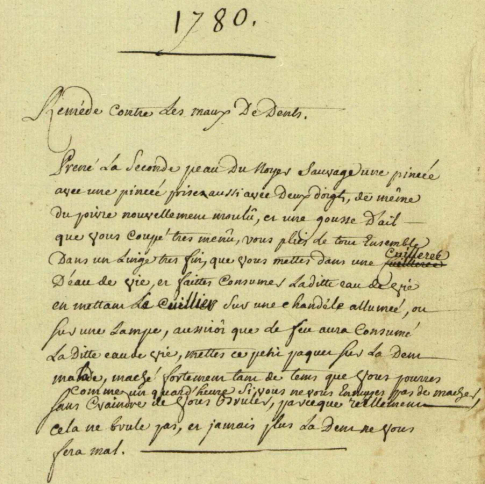 1780.
Reméde contre Les maux De Dents.
Prené La Seconde peau Du Noyer Sauvage une pinceé
avec une pinceé prise aussi avec Deux doigts, de même
du poivre nouvellement moulû, et une gousse D'ail
que vous Coupé tres menû, vous pliés Le tout Ensemble
Dans un Linge tres fin, que vous mettes dans une Cuilleree
D'eau de vie, et faites Consumer Laditte eau de vie
en mettant La Cuillier Sur une chandéle allumeé, ou
Sur une Lampe, aussitôt que Le feu aura Consumé
La Ditte eau de vie, mettes ce petit paquet sur La Dent
malade, maché fortement tant de tems que vous pourres
comme un quard'heure Si vous ne vous Ennuyes pas de macher,
sans Craindre de vous bruler, parceque reéllement
cela ne brule pas, et jamais plus La Dent ne vous
fera mal.